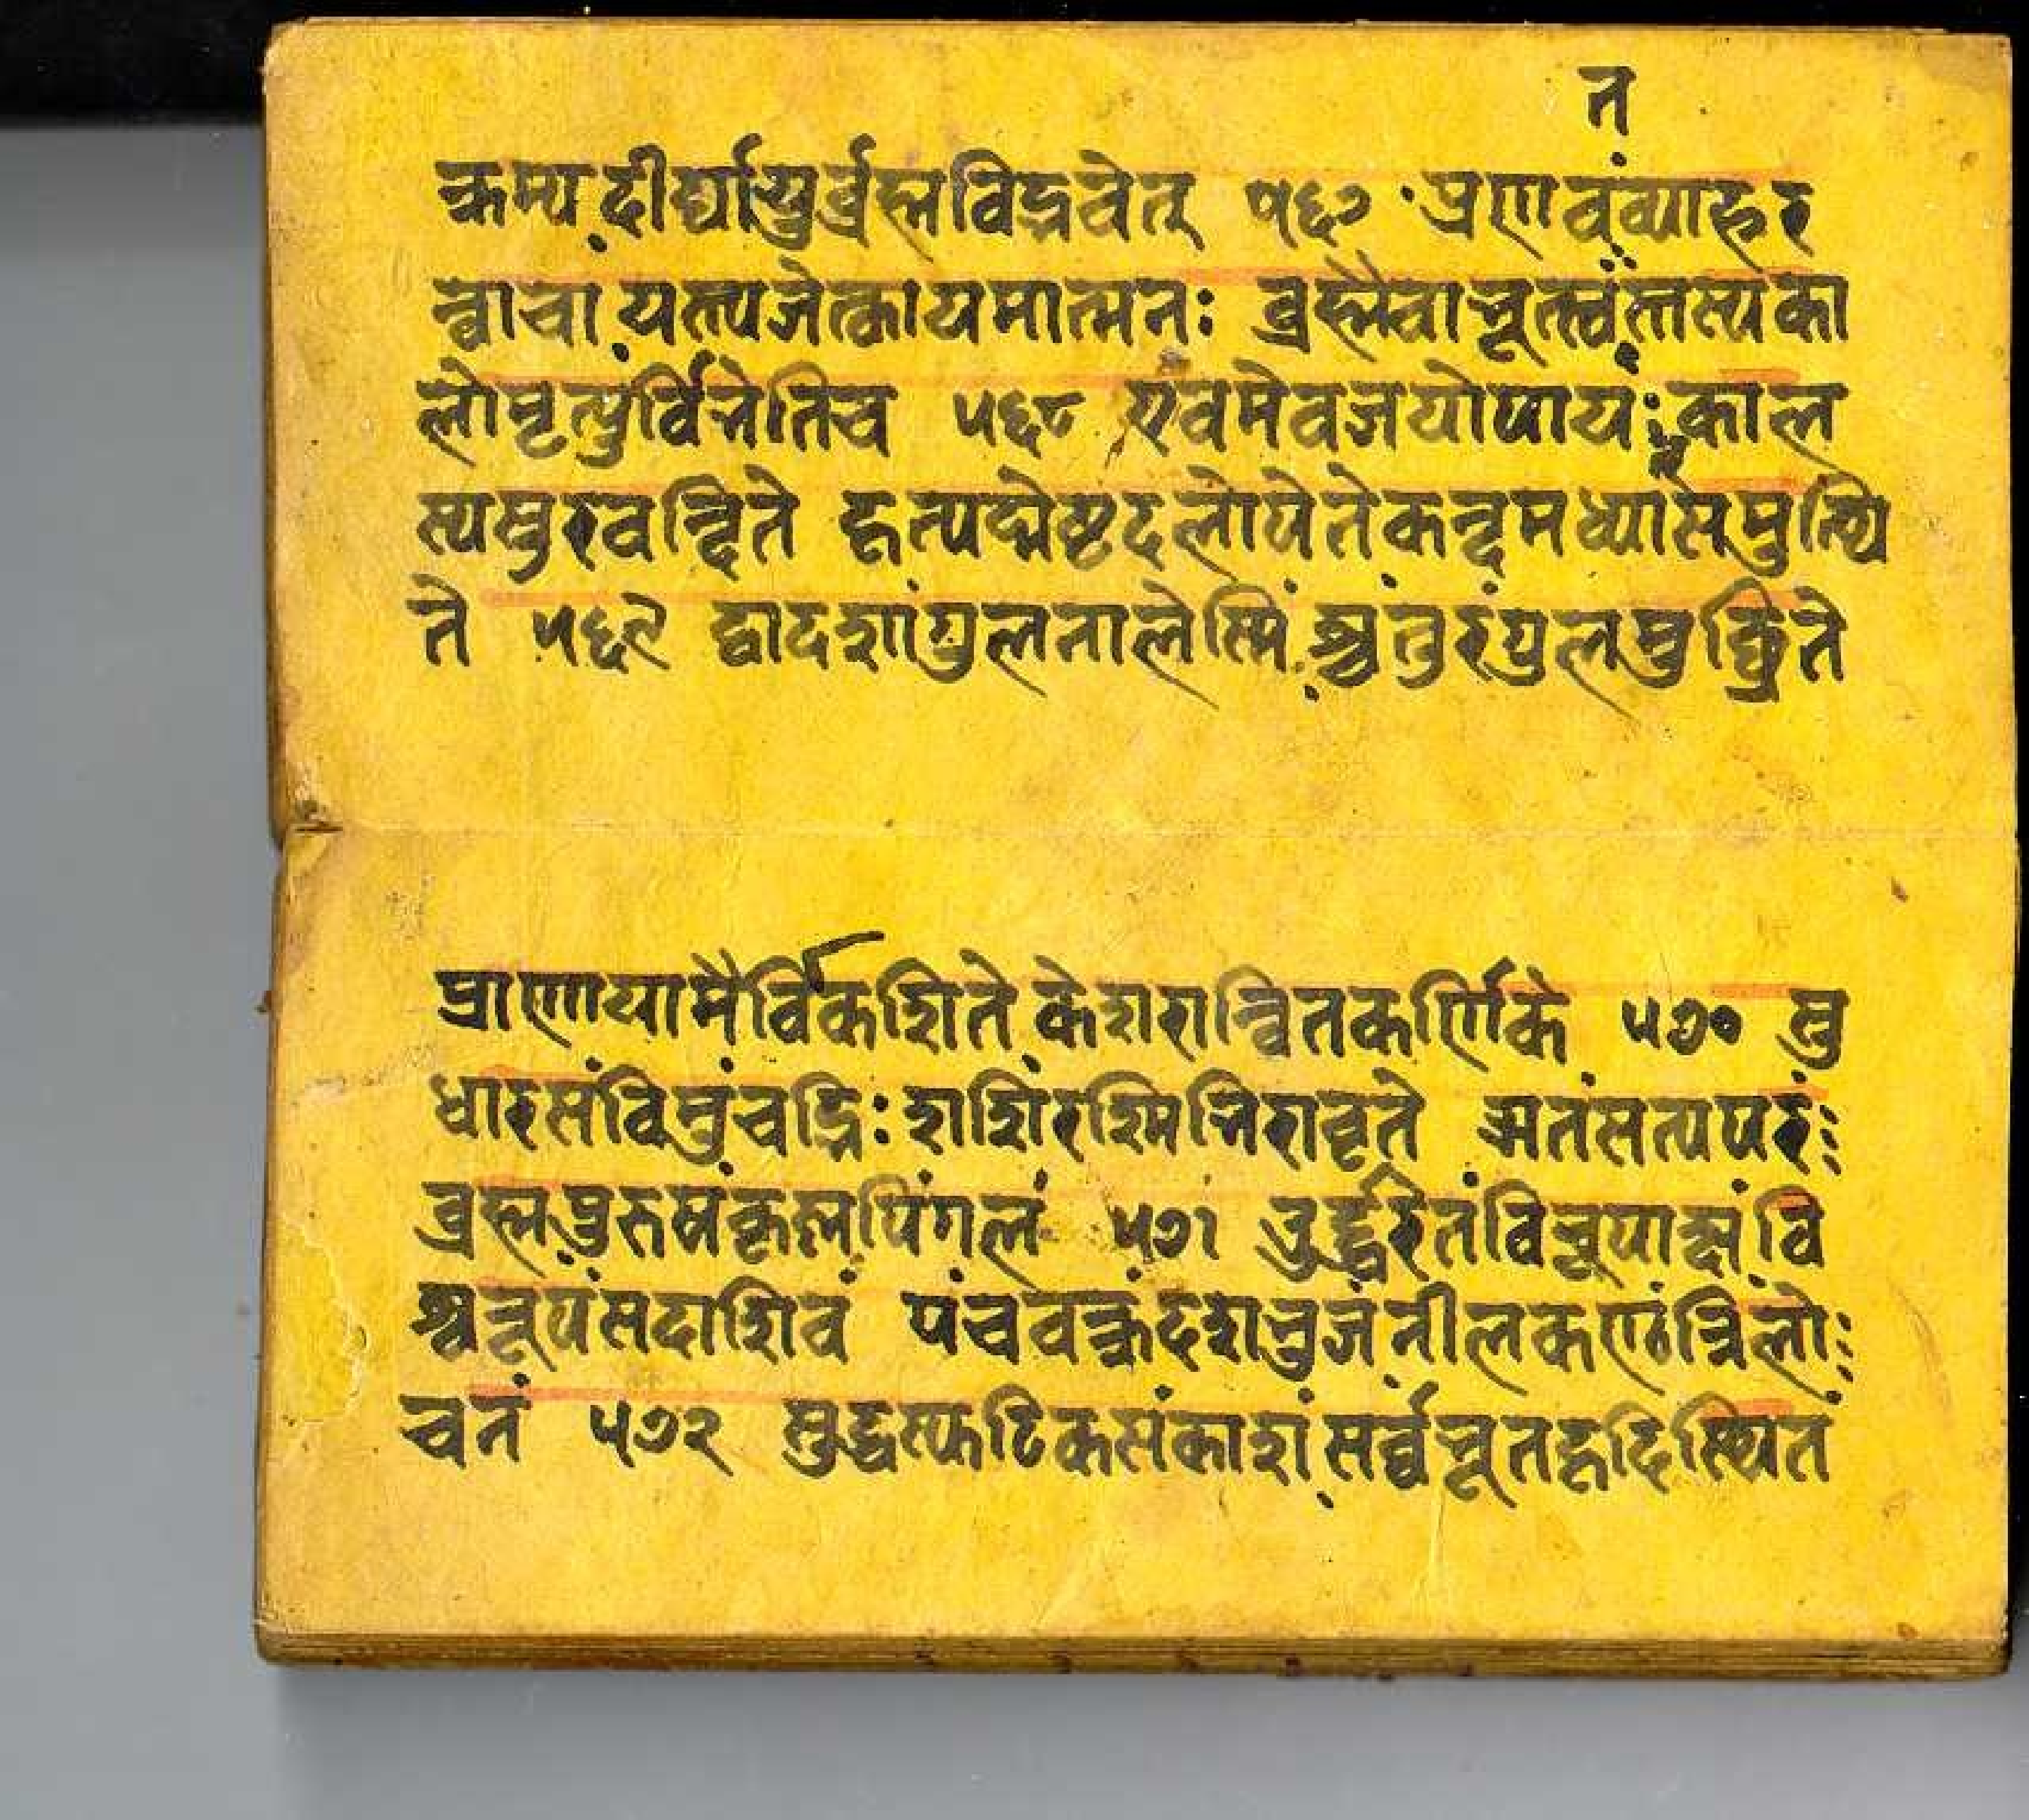 न
क्रम्य दीर्घायुर्ब्रह्मविद्भवेत् ५६७ प्रणवंव्याहर
न्वाचा यत्त्यजेत्कायमात्मनः ब्रह्मैवाभूत्स्वंस्तस्यका
लोमृत्युर्विभेतिच ५६८ एवमेवजयोपायः काल
स्यसुरवन्दिते हृत्पद्मेष्टदलोपेतेकन्दमध्यासमुत्थि
ते ५६९ द्वादशांगुलनालेस्मिंश्चतुरंगुलमुच्छ्रिते
प्राणायामैर्विकशितेकेशरान्वितकर्णिके ५७० सु
धारसंविमुंचद्भिः शशिरश्मिभिरावृते ऋतंसत्यपरं
ब्रह्मपुरुषंकृष्णपिंगलं ५७१ वुर्द्ध्वरेतंविरूपाक्षंवि
श्वरूपंसदाशिवं पंचवक्त्रंदशभुजंनीलकण्ठंत्रिलो
चनं ५७२ सुद्धस्फटिकसंकाशंसर्व्वभूतहृदिस्थित